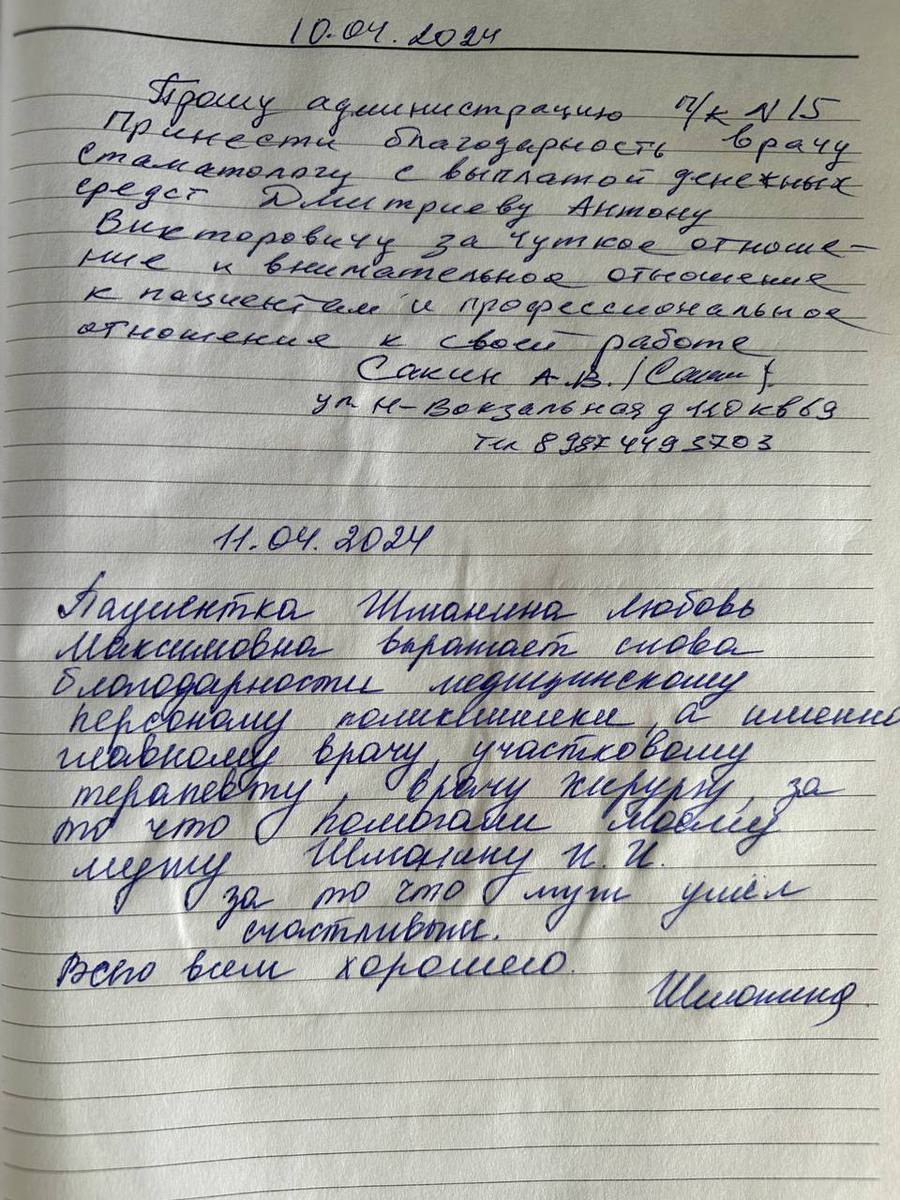 10.04.2024
Прошу администрацию п/к N 15
Принести благодарность врачу
стаматологу с выплатой денежных
средст Дмитриеву Антону
Викторовичу за чуткое отноше-
ние и внимательное отношение
к пациентам и профессиональное
отношение к своей работе
Сакин А.В. /Сакин/.
ул Н-Вокзальная д 110 кв 69
тел 8 987 449 3703
11.04.2024
Пациентка Шманина Любовь
Максимовна выражает слова
благодарности медицинскому
персоналу поликлиники, а именно
главному врачу, участковому
терапевту, врачу хирургу, за
то что помогали моему
мужу Шманину И. И.
за то что муж ушёл
счастливым.
Всего всем хорошего.
Шманина.